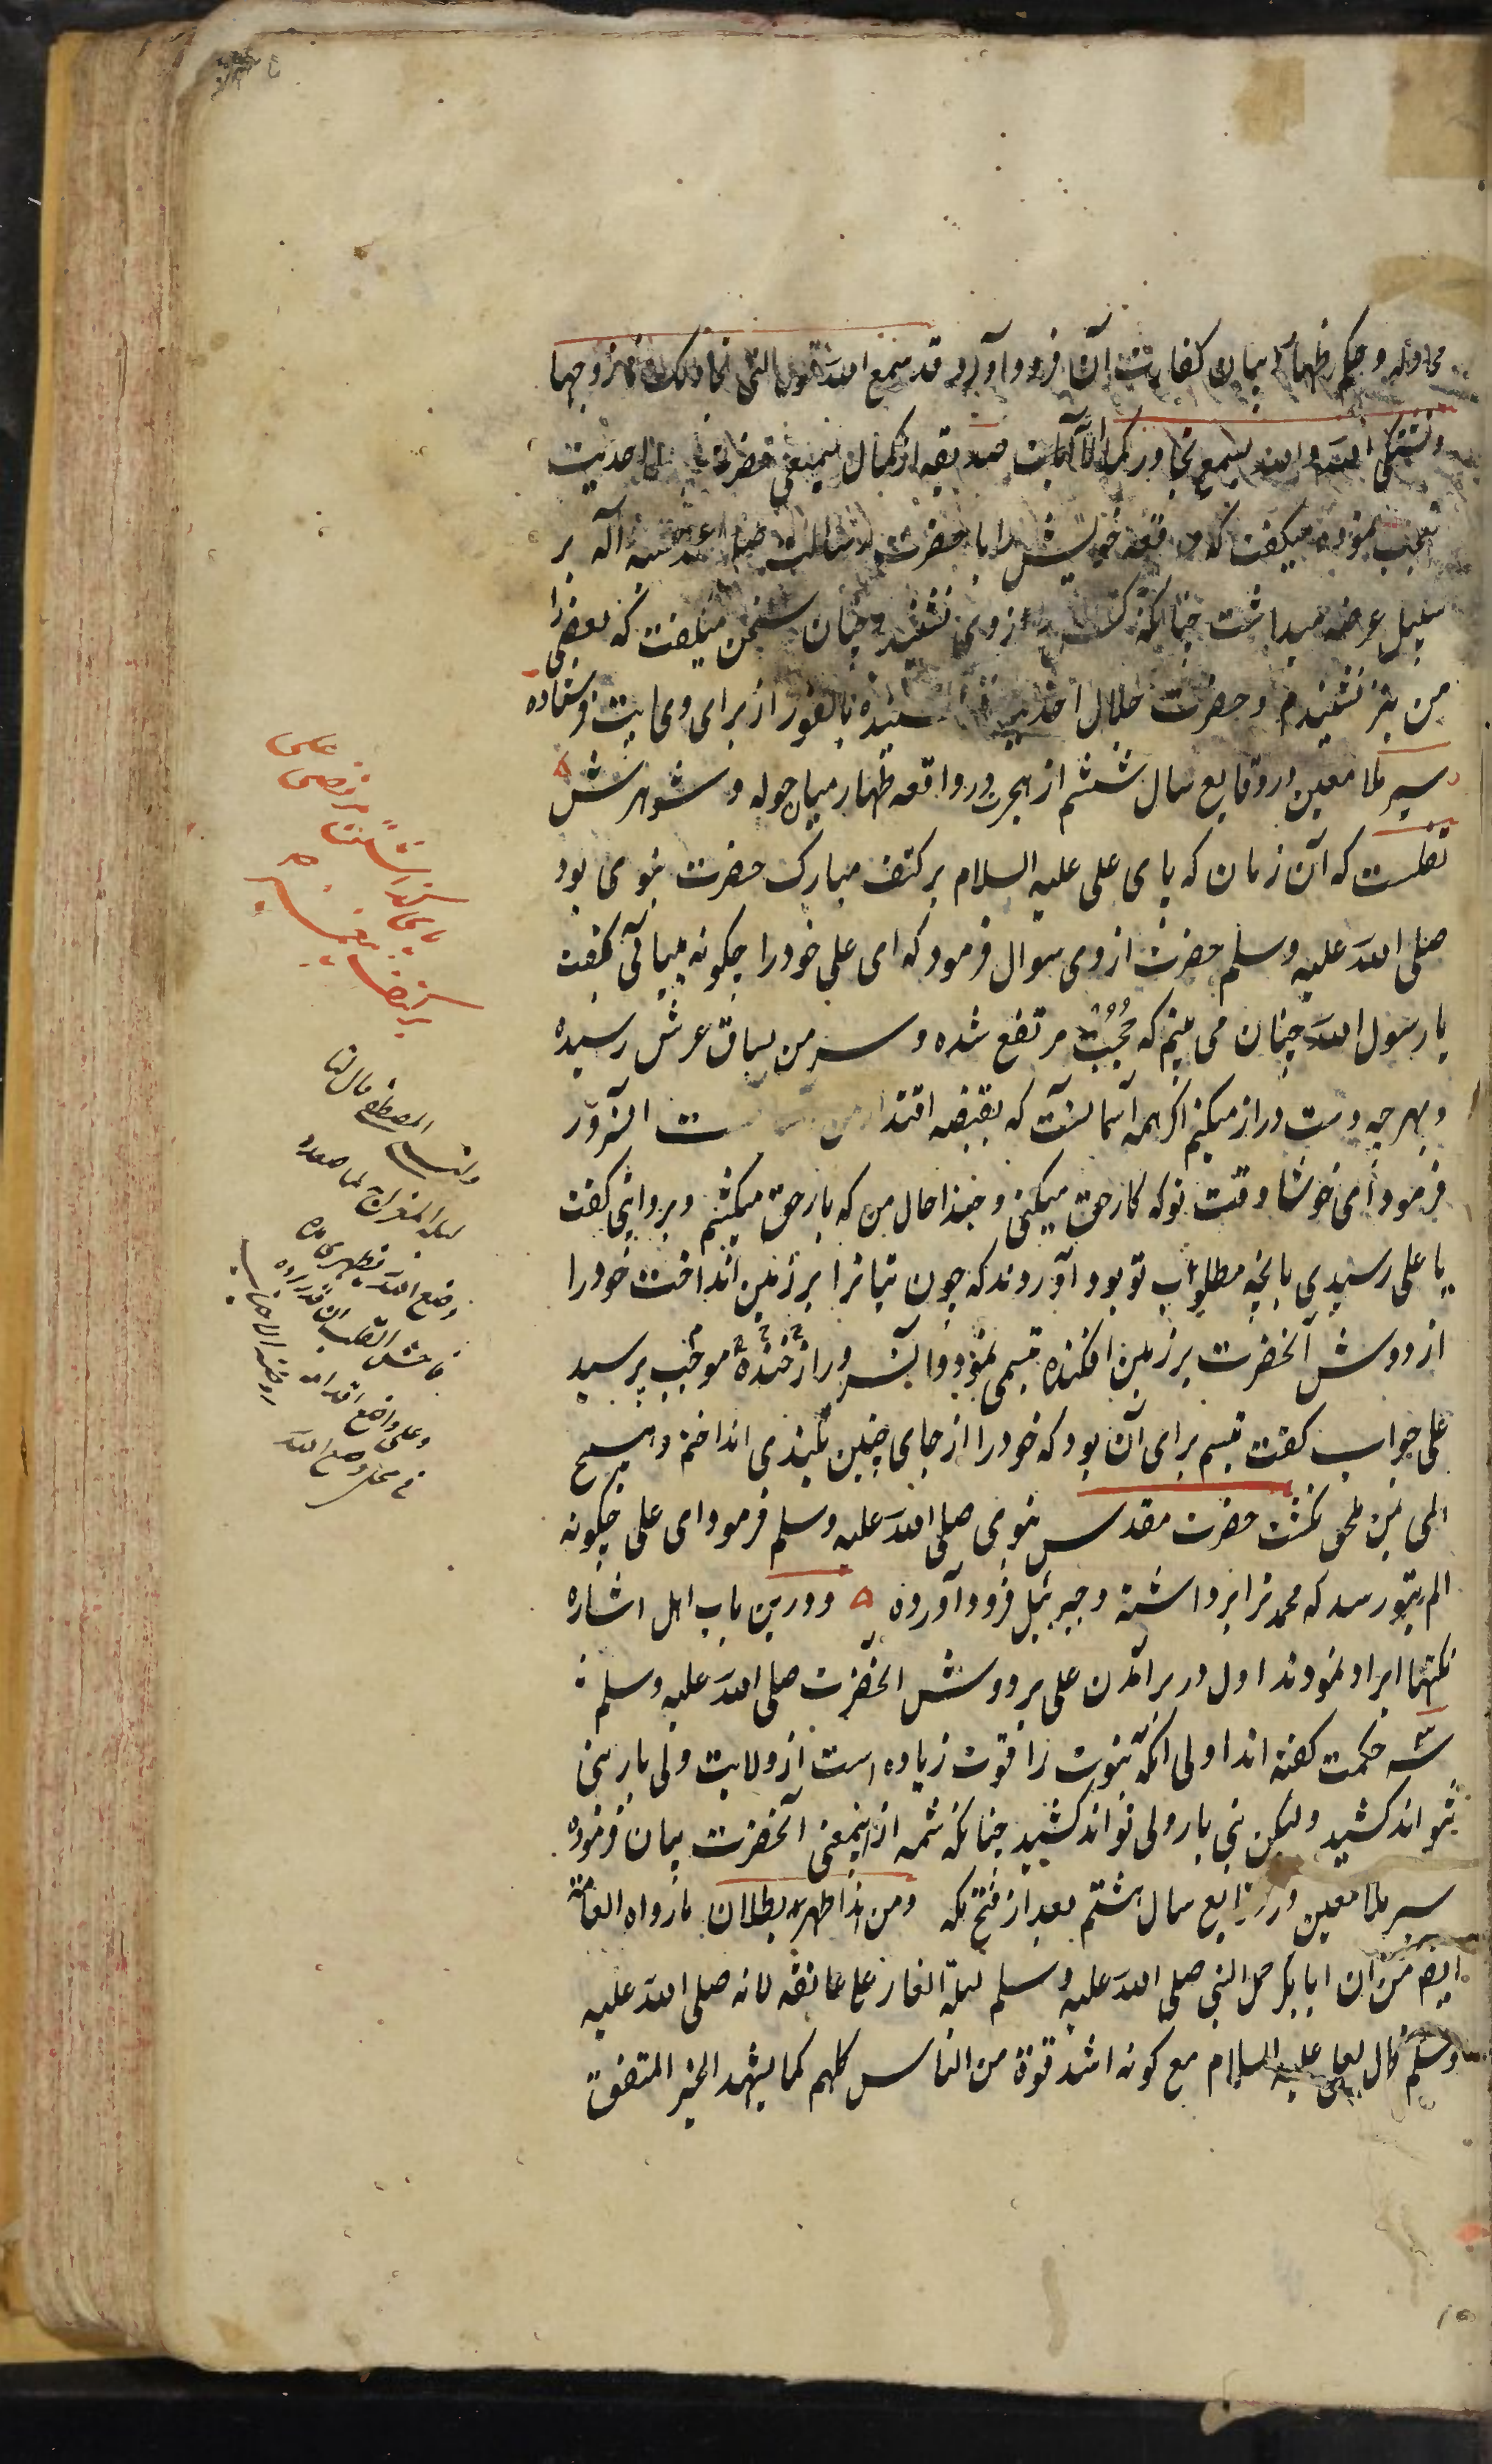 مجادله و حکم ظهار بیان کفارت آن فرود آورد قد سمع الله قول التی تجادلک فی زوجها
و تشتکی الی الله والله یسمع تحاورکما الآیات صدیقه از کمال سمیعی حضرت احدیت
تعجب نموده میگفت که واقعه خویش را با حضرت رسالت صلی الله علیه و آله بر
سبیل عرضه میداشت چنانکه کسی از وی نشنید و چنان سخن میگفت که بعضی را
من نیز نشنیدم و حضرت جلال احدیت شنیده بالفور از برای وی آیت فرستاده
سیر ملا معین در وقایع سال ششم از هجرت در واقعه ظهار میان خوله و شوهرش
نقلست که آن زمان که پای علی علیه السلام بر کتف مبارک حضرت نبوی بود
صلی الله علیه وسلم حضرت از وی سوال فرمود که ای علی خود را چگونه میبائی گفت
یا رسول الله چنان می بینم که حُجُب مرتفع شده و سر من بساق عرش رسیده
و بهر چه دست دراز میکنم اگر همه آسمانست که بقبضه اقتدار من ست انسرور
فرمود ای خوشا وقت تو که کار حق میکنی و حبذا حال من که بار حق میکشم و بروایتی گفت
یا علی رسیدی بانچه مطلوب تو بود آورده‌اند که چون بتانرا بر زمین انداخت خود را
از دوش آنحضرت بر زمین افکنده تبسمی نمود و آنسرور از خنده موجب پرسید
علی جواب گفت تبسم برای آن بود که خود را از جای چنین بلندی انداختم و هیچ
المی بمن ملحق نگشت حضرت مقدس نبوی صلی الله علیه وسلم فرمود ای علی چگونه
الم بتو رسد که محمد ترا برداشته و جبرئیل فرود آورده و درین باب اهل اشاره
نکتها ایراد نمودند اول در برآمدن علی بر دوش آنحضرت صلی الله علیه وسلم
سه حکمت گفته اند اولی آنکه نبوت را قوت زیاده است از ولایت ولی بار نبی
نتواند کشید ولیکن نبی بار ولی تواند کشید چنانکه شمه از اینمعنی آنحضرت بیان فرموده
سیر ملا معین در وقایع سال هشتم بعد از فتح مکه و من هذا ظهر بطلان ما رواه العامة
ایضا من ان ابابکر حمل النبی صلی الله علیه وسلم لیلة الغار علی عاتقه لانه صلی الله علیه
وسلم قال لعلی علیه السلام مع کونه اشد قوة من الناس کلهم کما یشهد الخبر المتفق
المصطفی قال لنا
لیلة المعراج لما صعده
وضع الله بظهری یده
فاحس القلب ان قد برده
وعلی واضع اقدامه
فی محل وضع الله یده